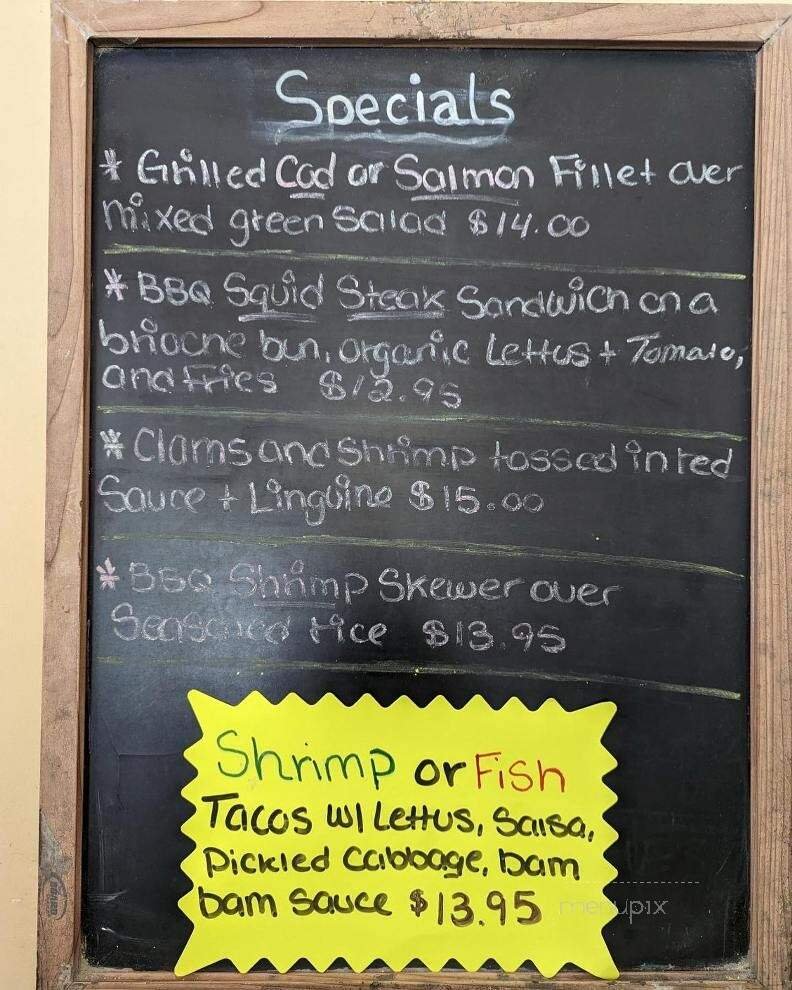 Specials
* Grilled Cod or Salmon Fillet over
mixed green Salad $14.00
* BBQ Squid Steak Sandwich on a
brioche bun, organic Lettus + Tomato,
and Fries $12.95
* Clams and Shrimp tossed in red
Sauce + Linguine $15.00
* BBQ Shrimp Skewer over
Seasoned rice $13.95
Shrimp or Fish
Tacos w/ Lettus, Salsa,
Pickled Cabbage, bam
bam Sauce $13.95
menupix